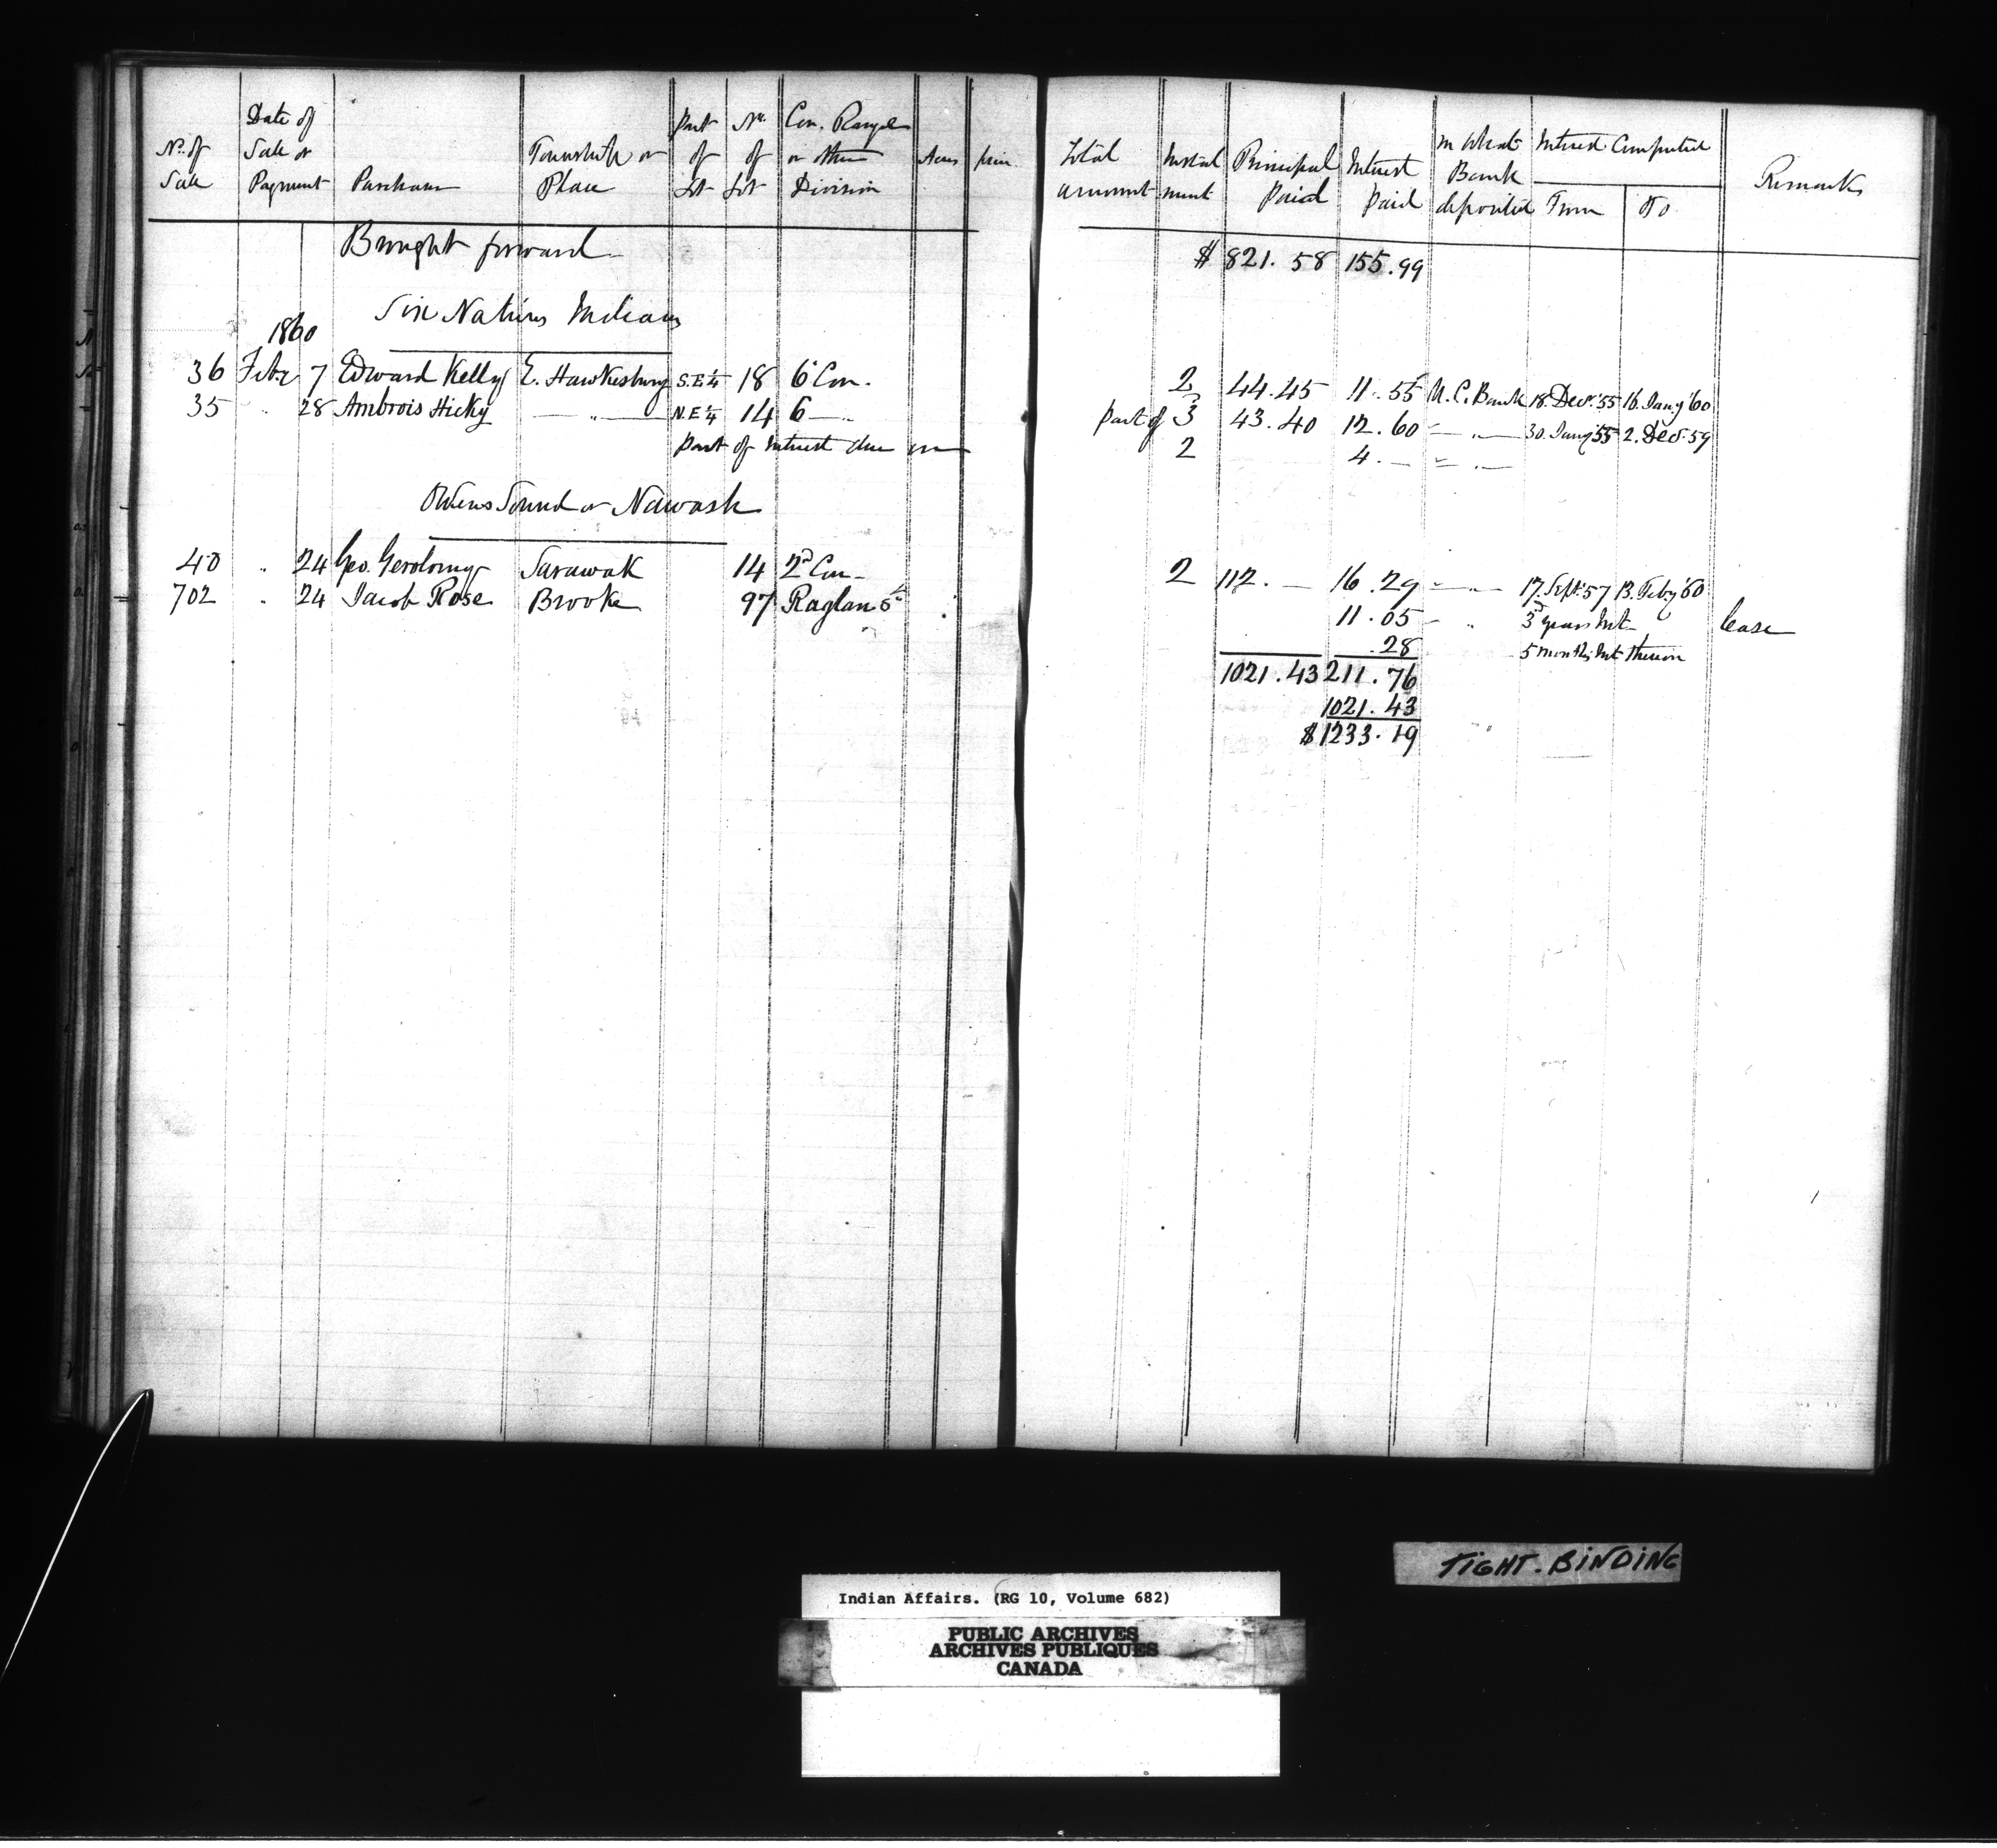 No. of Sale | Date of Sale or Payment | Purchaser | Township or Place | Part of Lot | No. of Lot | Con. Range or other Division | Acres | price | Total amount | Instalment | Principal Paid | Interest Paid | In what Bank deposited | Interest Computed From | To | Remarks
Brought forward $ 821.58 155.99
Six Nations Indians
1860
36 Feby 7 Edward Kelly E. Hawkesbury S.E ¼ 18 6 Con. 2 44.45 11.55 U.C. Bank 18. Decr. '55 16. Jany '60
35 " 28 Ambrois Hicky — " — N.E ¼ 14 6 — " Part of 3 43.40 12.60 — " — 30. Jany '55 2. Dec. 59
Part of Interest due on 2 4. — — " —
Owens Sound or Nawash
40 " 24 Geo. Gerolomy Sarawak 14 2d Con. 2 112. — 16.29 — " — 17. Sept. 57 13. Feby '60
702 " 24 Jacob Rose Brooke 97 Raglan St 11.05 — " 3 years Int. Lease
.28 5 months Int thereon
1021.43 211.76
1021.43
$1233.19
TIGHT. BINDING
Indian Affairs. (RG 10, Volume 682)
PUBLIC ARCHIVES
ARCHIVES PUBLIQUES
CANADA